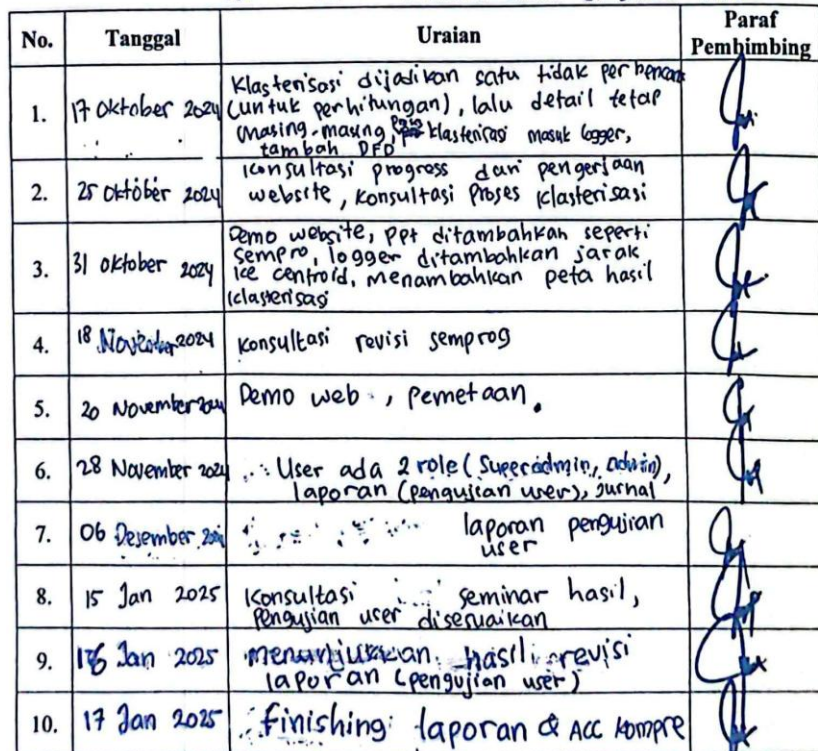 No. Tanggal Uraian Paraf
Pembimbing
1. 17 Oktober 2024 Klasterisasi dijadikan satu tidak per bencana
(untuk perhitungan), lalu detail tetap
masing-masing, klasterisasi masuk logger,
tambah DFD
2. 25 Oktober 2024 Konsultasi progress dari pengerjaan
website, konsultasi Proses klasterisasi
3. 31 Oktober 2024 Demo website, ppt ditambahkan seperti
sempro, logger ditambahkan jarak
ke centroid, menambahkan peta hasil
klasterisasi
4. 18 November 2024 Konsultasi revisi semprog
5. 20 November 2024 Demo web, pemetaan.
6. 28 November 2024 User ada 2 role (Superadmin, admin),
laporan (pengujian user), jurnal
7. 06 Desember laporan pengujian
user
8. 15 Jan 2025 Konsultasi seminar hasil,
pengujian user disesuaikan
9. 16 Jan 2025 menunjukkan hasil revisi
laporan (pengujian user)
10. 17 Jan 2025 finishing laporan & ACC kompre